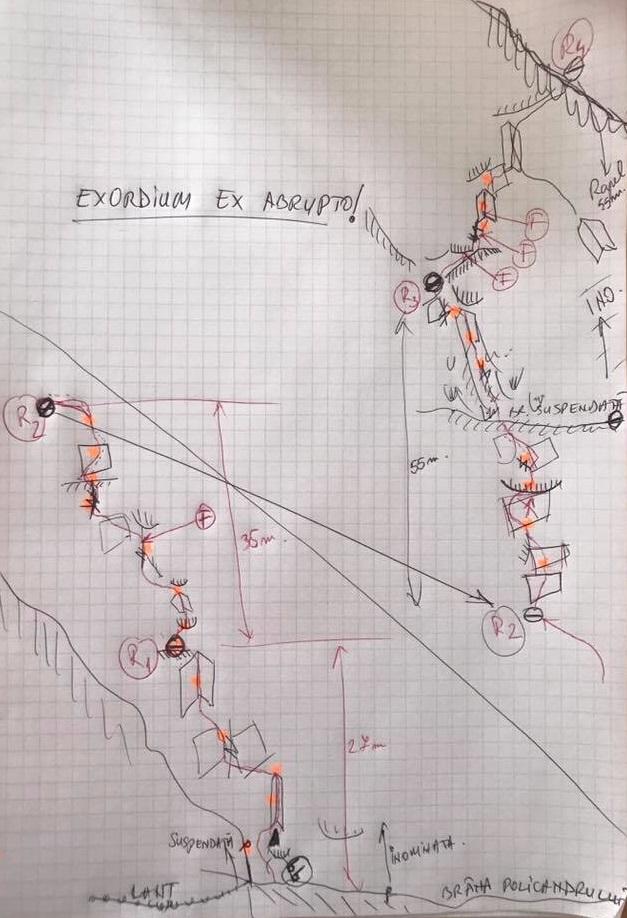 EXORDIUM EX ABRUPTO!
R4
Rapel
55m.
F
F
F
R3
INO.
SUSPENDATĂ
55m.
R2
R2
F
35m.
R1
27m
SUSPENDATĂ
INOMINATA.
LANȚ
BRÂNA POLICANDRULUI